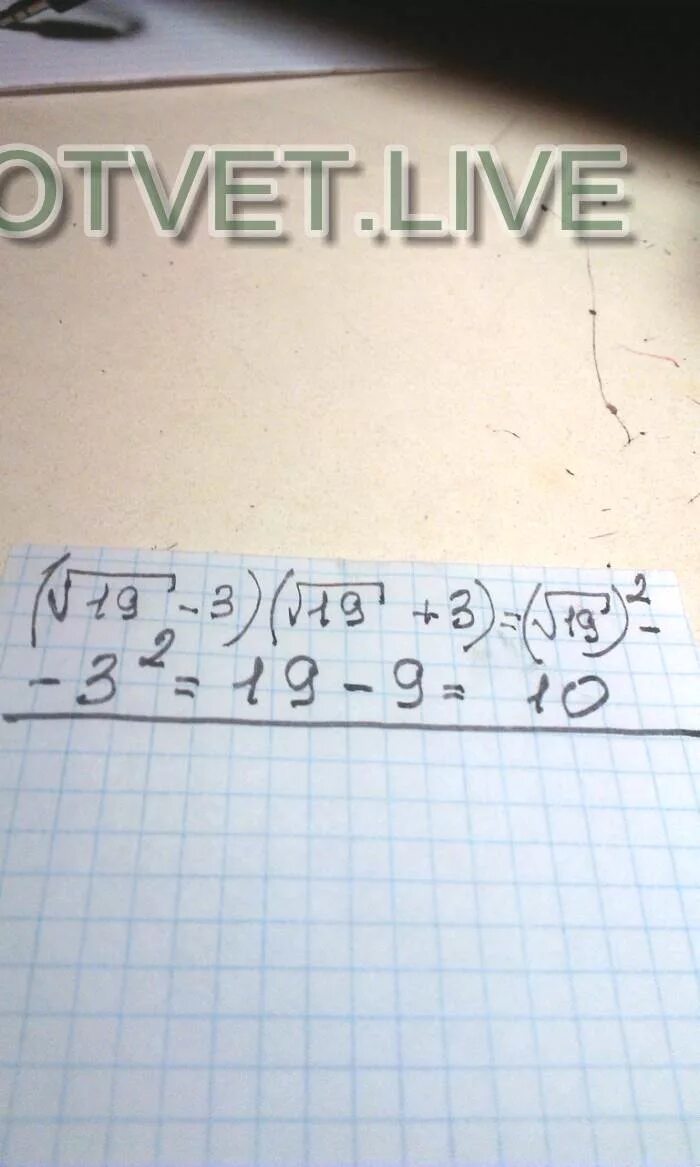 OTVET.LIVE
(√19 - 3)(√19 + 3) = (√19)² -
- 3² = 19 - 9 = 10